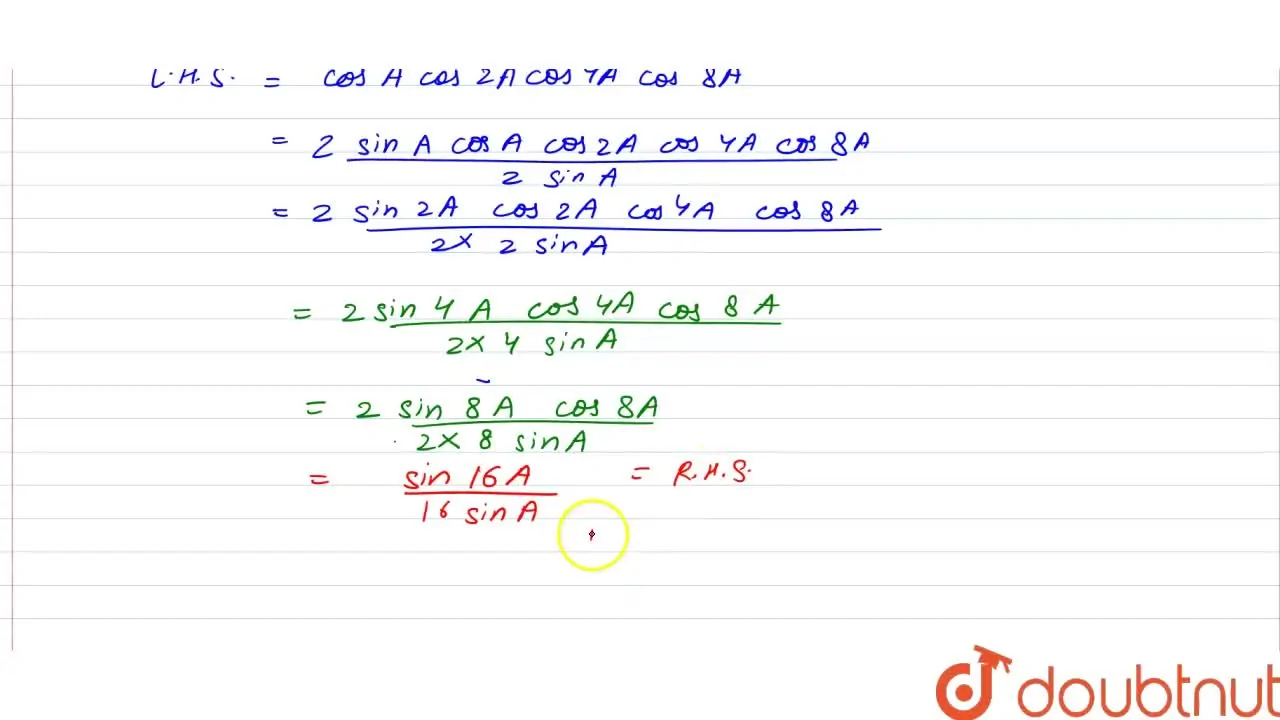 L.H.S. = cos A cos 2A cos 4A cos 8A
= 2 sin A cos A cos 2A cos 4A cos 8A
2 sin A
= 2 sin 2A cos 2A cos 4A cos 8A
2 × 2 sin A
= 2 sin 4A cos 4A cos 8A
2 × 4 sin A
= 2 sin 8A cos 8A
2 × 8 sin A
= sin 16A = R.H.S.
16 sin A
doubtnut